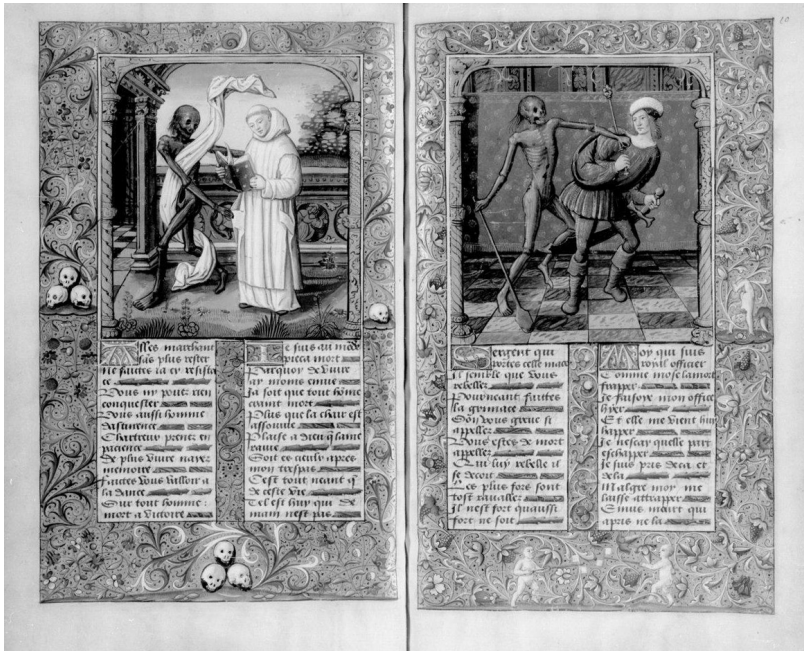 Alles marchant
sãs plus rester
Ne faictes ia cy resistã
ce
Vous ny pouez rien
conquester
Vous aussi homme
dastinence
Chartreux prenez en
pacience
De plus viure nayez
memoire
Faictes vous valloir a
la dance
Sur tout homme :
mort a victoire
Ie suis au mõde
pieca mort
Parquoy de viure
ay moins enuie
Ja soit que tout hõme
craint mort
Plus que la chair est
assouuie
Plaise a dieu q̃ lame
rauie
Soit es cieulx apres
mon trespas
Cest tout neant q̃
de ceste vie
Tel est huy qui de
main nest pas
Sergent qui
portes celle mace
Il semble que vous
rebelles
Pourneant faictes
la grimace
Son vous greue si
appellez
Vous estes de mort
appellez
Qui luy rebelle il
se decoit
Les plus fors sont
tost rauallez
Il nest fort quaussi
fort ne soit
Moy qui suis
royal officier
Comme mose la mort
frapper
Ie faisoye mon office
hyer
Et elle me vient huy
happer
Ie ne scay quelle part
eschapper
Ie suis pris deca et
dela
Malgre moy me
laisse attrapper
Enuis meurt qui
apris ne la